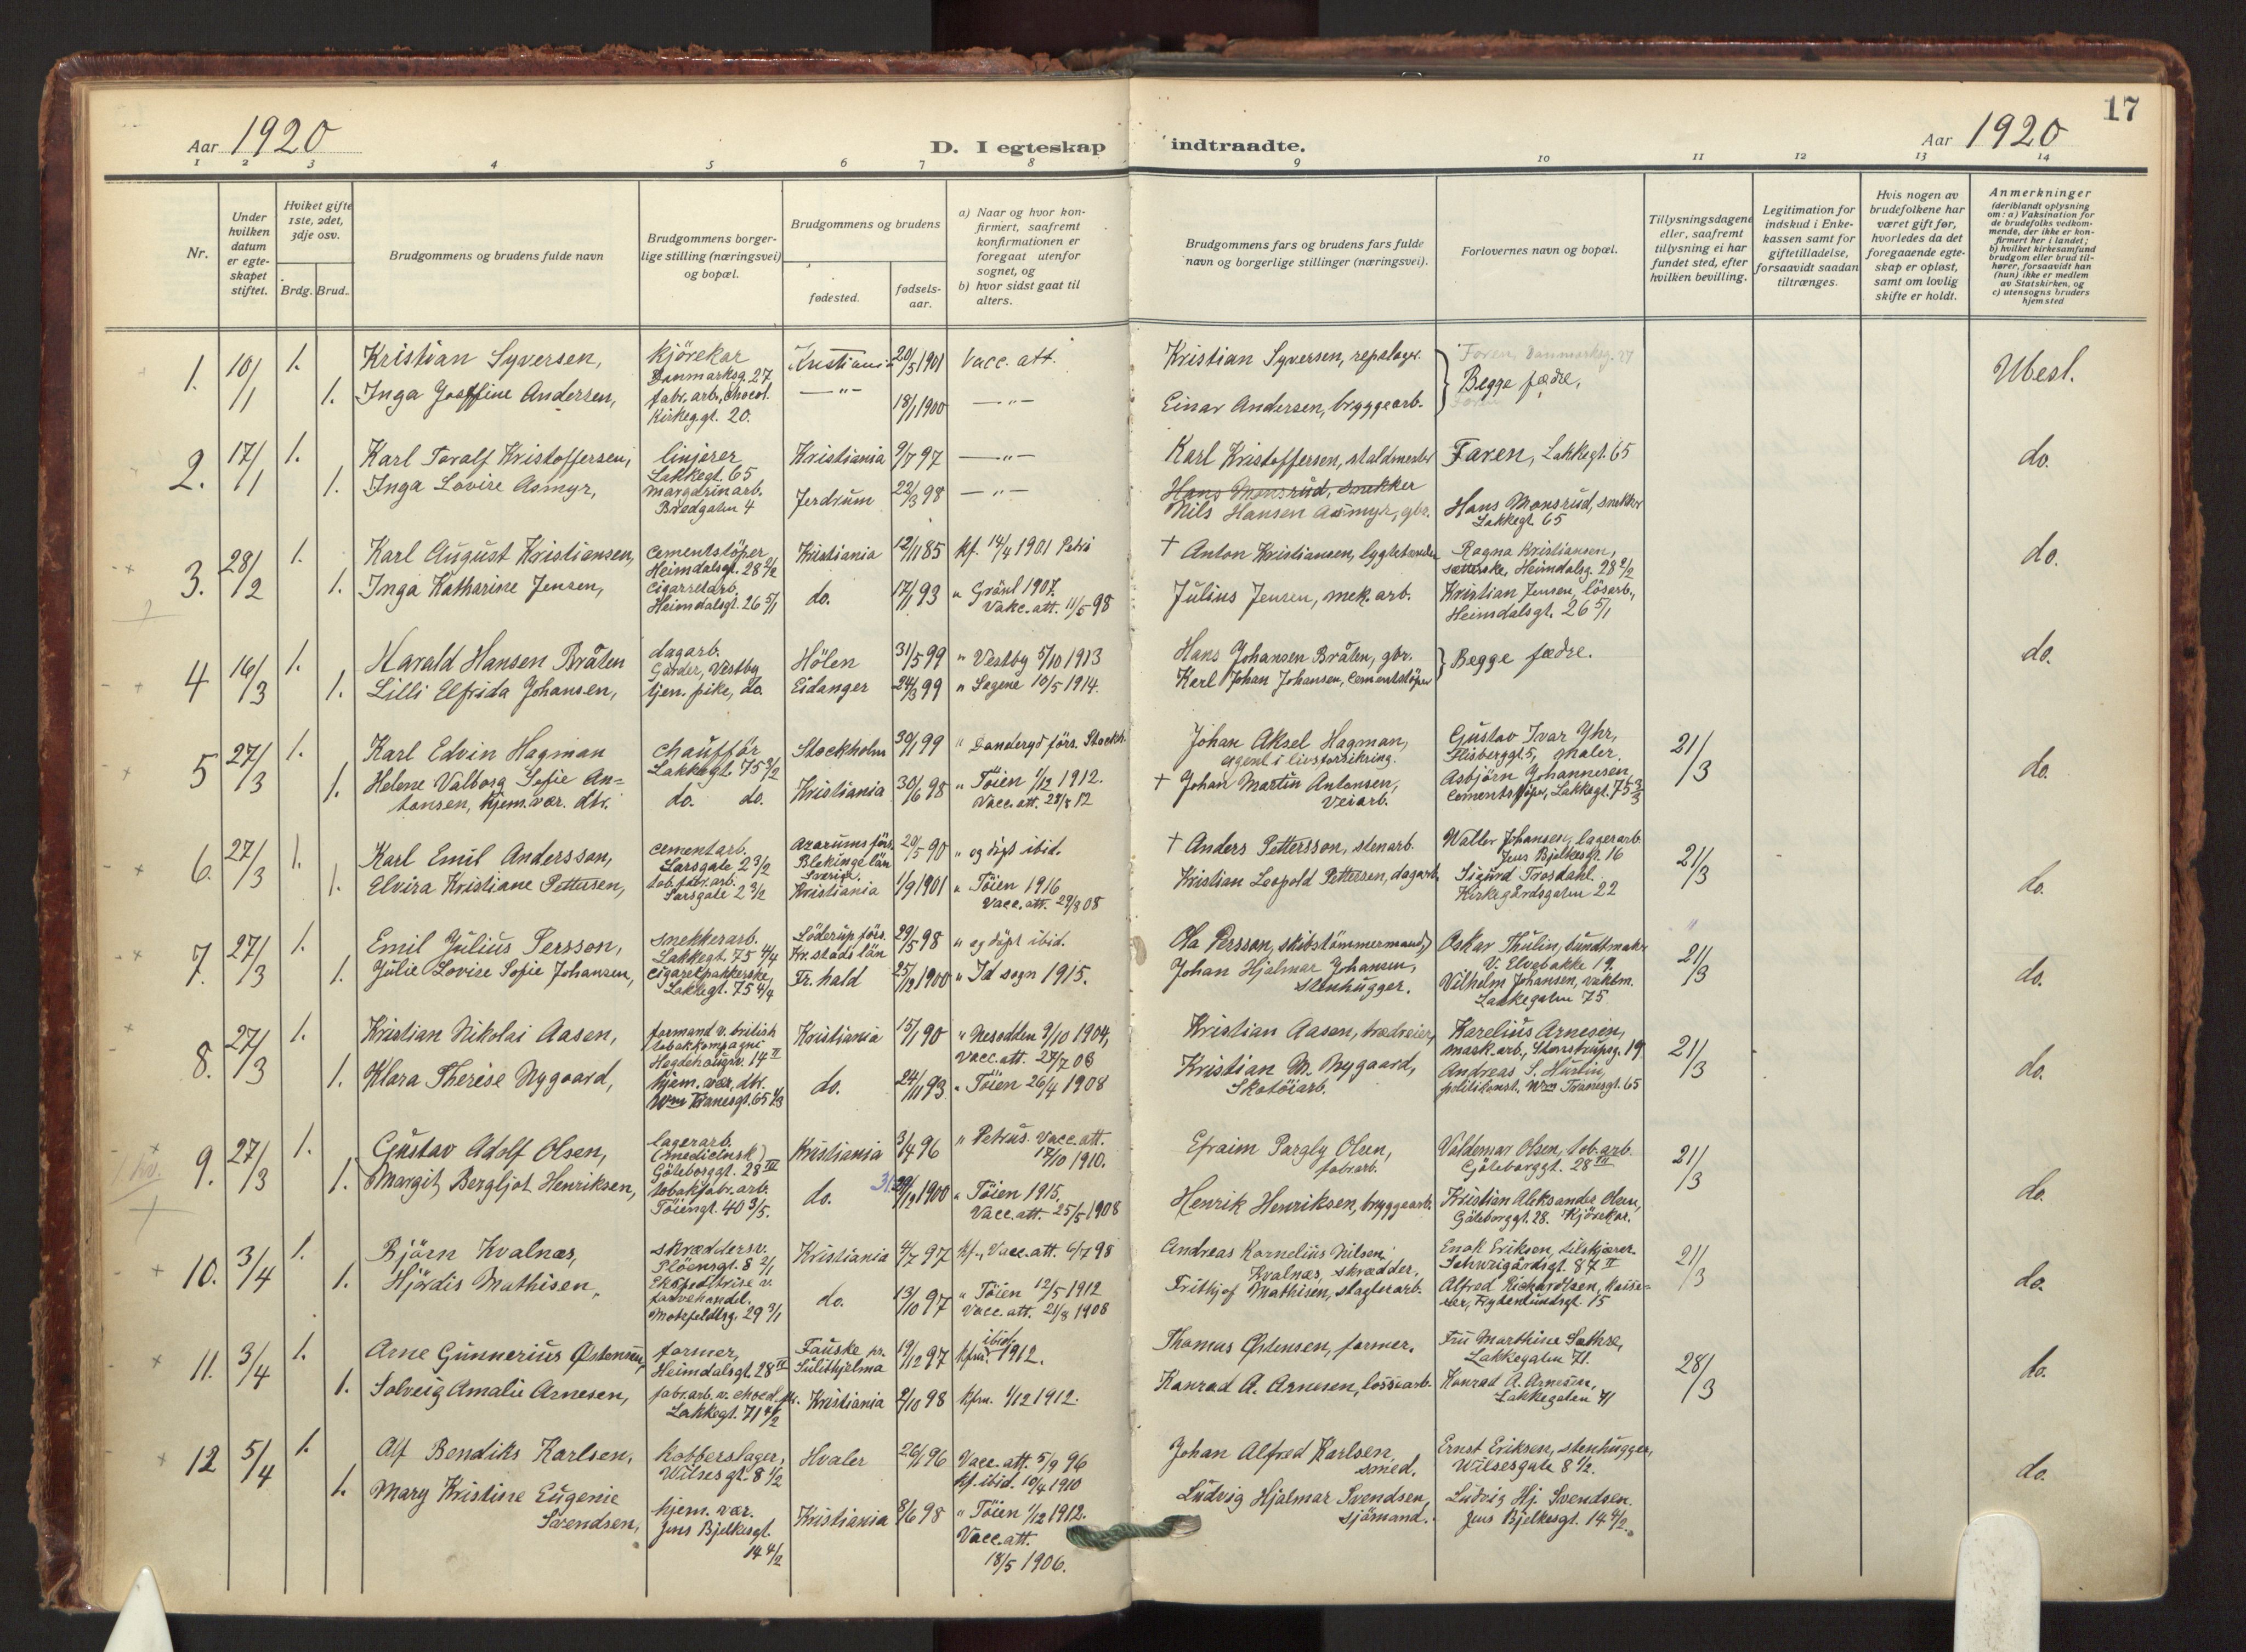 17
Aar 1920
D. I egteskap indtraadte.
Aar 1920
1 2 3 4 5 6 7 8 9 10 11 12 13 14
Nr.
Under hvilken datum er egteskapet stiftet.
Hviket gifte 1ste, 2det, 3dje osv.
Brdg. Brud.
Brudgommens og brudens fulde navn
Brudgommens borgerlige stilling (næringsvei) og bopæl.
Brudgommens og brudens
fødested.
fødselsaar.
a) Naar og hvor konfirmert, saafremt konfirmationen er foregaat utenfor sognet, og
b) hvor sidst gaat til alters.
Brudgommens fars og brudens fars fulde navn og borgerlige stillinger (næringsvei).
Forlovernes navn og bopæl.
Tillysningsdagene eller, saafremt tillysning ei har fundet sted, efter hvilken bevilling.
Legitimation for indskud i Enkekassen samt for giftetilladelse, forsaavidt saadan tiltrænges.
Hvis nogen av brudefolkene har været gift før, hvorledes da det foregaaende egteskap er opløst, samt om lovlig skifte er holdt.
Anmerkninger
(deriblandt oplysning om: a) Vaksination for de brudefolks vedkommende, der ikke er konfirmert her i landet;
b) hvilket kirkesamfund brudgom eller brud tilhører, forsaavidt han (hun) ikke er medlem av Statskirken, og
c) utensogns bruders hjemsted
1. 10/1 1. Kristian Syversen, kjörekar Danmarksg. 27 Kristiania 20/5 1901 Vacc. att. Kristian Syversen, repslager. Begge fædre. Ubesl.
1. Inga Josffine Andersen, fabr. arb., chocol. Kirkeg.gt. 20. —"— 18/1 1900 —"— Einar Andersen, bryggearb.
2. 17/1 1. Karl Toralf Kristoffersen, linjerer Lakkegt. 65 Kristiania 9/7 97 —"— Karl Kristoffersen, staldmester Faren, Lakkegt. 65 do.
1. Inga Lovise Asmyr, margarinarb. Bredgaten 4 Jerdrum 22/3 98 —"— Hans Monsrud, snekker
Nils Hansen Aasmyr, gbr. Hans Monsrud, snekker Lakkegt. 65
3. 28/2 1. Karl August Kristiansen, cementstöper Heimdalsgt. 28 2/2 Kristiania 12/11 85 kf. 14/4 1901 Petri † Anton Kristiansen, lygtetænder Ragna Kristiansen, Heimdalsg. 28 2/2 do.
1. Inga Katharine Jensen, cigarretarb. Heimdalsgt. 26 5/1 do. 17/1 93 " Grönl 1907. Vakc. att. 11/5 98 Julius Jensen, mek. arb. Kristian Jensen, lösarb., Heimdalsgt. 26 5/1
4 16/3 1. Harald Hansen Bråten dagarb. Gjerder, Vestby Hölen 31/5 99 " Vestby 5/10 1913 Hans Johansen Bråten, gbr. Begge fædre. do.
1. Lilli Elfrida Johansen, tjen. pike, do. Eidanger 24/3 99 " Sagene 10/5 1914. Karl Johan Johansen, Cementstöper
5 27/3 1. Karl Edvin Hagman chaufför Lakkegt. 75 3/2 Stockholm 30/1 99 " Danderyd förs. Stockh. Johan Aksel Hagman, agent i livsforsikring. Gustav Ivar Yhr, Flisberggt. 5, maler. 21/3 do.
1. Helene Valborg Sofie Antonsen, hjem.vær. dtr. do. do. Kristiania 30/6 98 " Töien 1/12 1912. Vacc. att. 28/8 12 † Johan Martin Antonsen, Veiarb. Asbjörn Johannesen, Cementstöper, Lakkegt. 75 2/3
6. 27/3 1. Karl Emil Andersson, cementarb. Larsgate 2 3/2 Azarums förs. Blekinge län Sverige. 20/5 90 " og döpt ibid. † Anders Pettersson, stenarb. Walter Johansen, lagerarb. Jens Bjelkesgt. 16 21/3 do.
1. Elvira Kristiane Pettersen, tob. fabr. arb. Larsgate 2 3/2 Kristiania 1/9 1901 " Töien 1916 Vacc. att. 29/8 08 Kristian Leopold Pettersen, dagarb. Sigurd Trosdahl. Kirkegårdsgaten 22
7. 27/3 1. Emil Julius Persson, snekkerarb. Lakkegt. 75 4/4 Löderup förs. Kr.stads län 29/5 98 " og döpt ibid. Ola Persson, skibstömmermand, Oskar Thulin, buntmaker V. Elvebakke 19. 21/3 do.
1. Julie Lovise Sofie Johansen, cigaretpakkerske, Lakkegt. 75 4/4 Fr.hald 25/12 1900 " Id sogn 1915. Johan Hjalmar Johansen, stenhugger. Vilhelm Johansen, vaktm. Lakkegaten 75
8. 27/3 1. Kristian Nikolai Aasen, formand v. british tobakkompagni Hegdehaugsv. 14 II Kristiania 15/1 90 " Nesodden 9/10 1904, Vacc. att. 27/7 08 Kristian Aasen, trædreier, Karelius Arnesen, mask. arb., Stenstrupsg. 19. 21/3 do.
1. Klara Therese Nygaard, hjem. vær. dtr. Wm Tranesgt. 65 1/3 do. 24/11 93 " Töien 26/4 1908 Kristian M. Nygaard, Skotöiarb. Andreas S. Hustin, politikonst. Wm Tranesgt. 65
9. 27/3 1. Gustav Adolf Olsen, lagerarb. (medicinsk) Göteborggt. 28 III Kristiania 3/4 96 " Petrus. Vacc. att. 17/10 1910. Efraim Pargly Olsen, fabr.arb. Valdemar Olsen, tob. arb. Göteborggt. 28 III 21/3 do.
1. Margit Bergljot Henriksen, tobakfabr. arb. Töiengt. 40 3/5. do. 1900 " Töien 1915, Vacc. att. 25/5 1908 Henrik Henriksen, bryggearb. Kristian Aleksander Olsen, Göteborggt. 28. Kjörekar.
10. 3/4 1. Björn Kvalnæs, skræddersv. Plöensgt. 8 2/1 Kristiania 4/7 97 kf., Vacc. att. 6/7 98 Andreas Kornelius Nilsen Kvalnæs, skrædder. Enok Eriksen, tilskjærer Schweigårdsgt. 87 II 21/3 do.
1. Hjördis Mathisen, Ekspeditrise v. farvehandel. Motzfeldtsg. 29 3/1 do. 13/10 97 " Töien 12/5 1912 Vacc. att. 21/8 1908 Frithjof Mathisen, slagterarb. Alfred Rickardtsen, Rydenlundsgt. 15
11. 3/4 1. Arne Gunnerius Østensen, former, Heimdalsgt. 28 II Fauske pr. Sulithjelma 19/12 97 kfm. ibid. 1912. Thomas Østensen, former. Fru Marthine Sæthre, Lakkegaten 71. 28/3 do.
1. Solveig Amalie Arnesen, fabr. arb. v. chocol. fbr. Lakkegt. 71 4/2 Kristiania 2/10 98 kfm. 1/12 1912. Konrad A. Arnesen, lossearb. Konrad A. Arnesen, Lakkegaten 71
12 5/4 1. Alf Bendiks Karlsen, kobberslager, Wilsesgt. 8 1/2 Hvaler 26/1 96 Vacc. att. 5/9 96 kf. ibid. 10/4 1910 Johan Alfred Karlsen, smed. Ernst Eriksen, stenhugger, Wilsesgate 8 1/2. do.
1. Mary Kristine Eugenie Svendsen, hjem. vær. Jens Bjelkesgt. 14 4/2 Kristiania 8/6 98 " Töien 1/12 1912. Vacc. att. 18/5 1906. Ludvig Hjalmar Svendsen, sjömand. Ludvig Hj. Svendsen. Jens Bjelkesgt. 14 4/2.